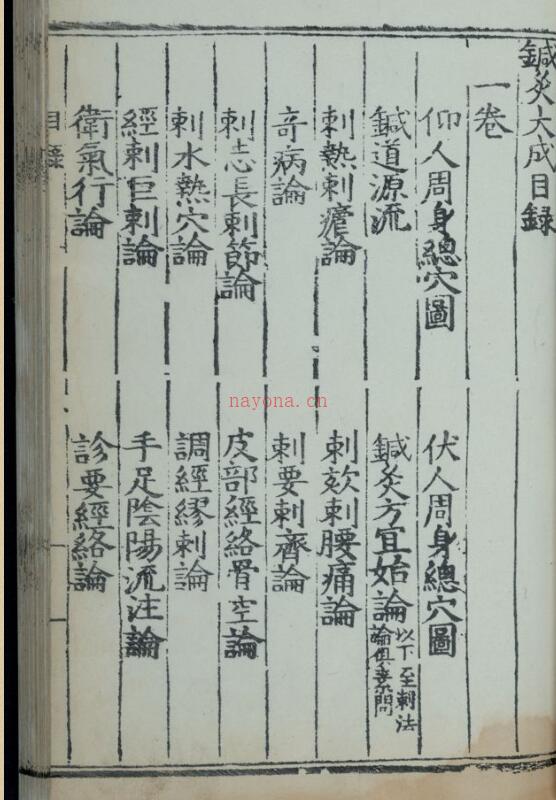 鍼灸大成目録
一卷
仰人周身總穴圖
伏人周身總穴圖
鍼道源流
鍼灸方宜始論以下至刺法論俱素問
刺熱刺瘧論
刺欬刺腰痛論
奇病論
刺要刺齊論
刺志長刺節論
皮部經絡骨空論
刺水熱穴論
調經繆刺論
經刺巨刺論
手足陰陽流注論
衛氣行論
診要經絡論
目錄
nayona.cn